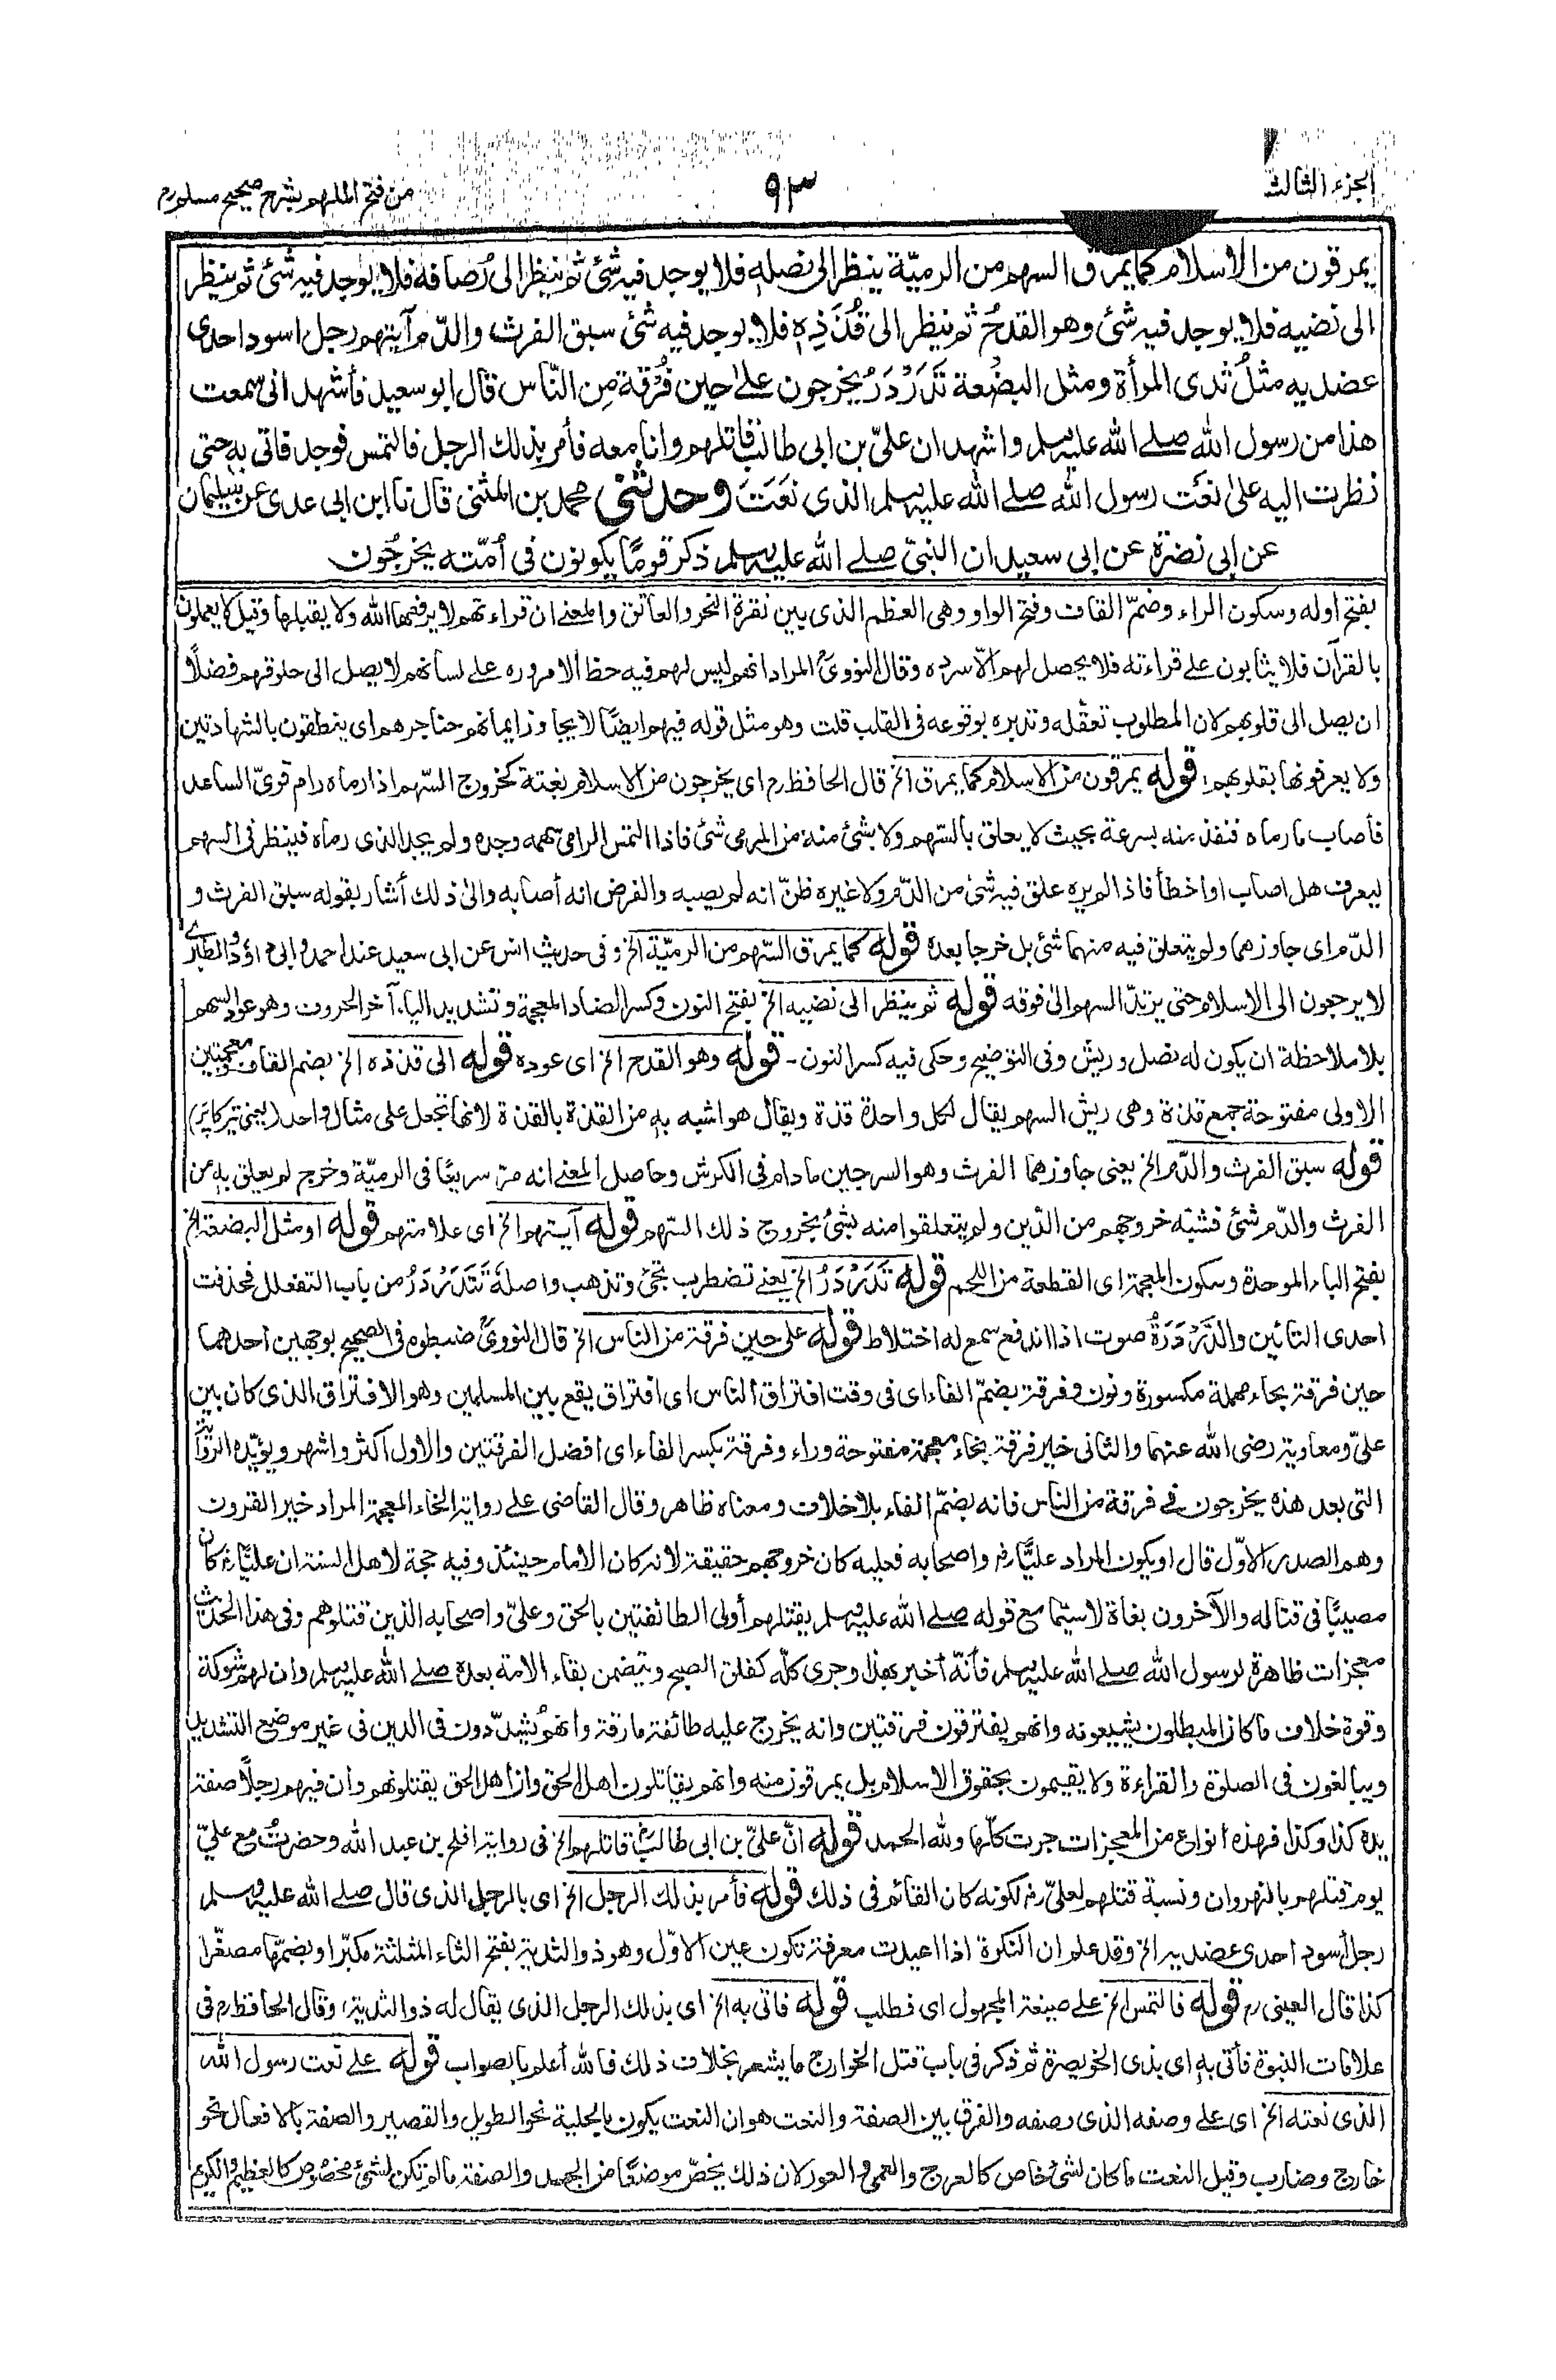 الجزء الثالث
٩٣
من فتح الملهم بشرح صحيح مسلم رح
يمرقون من الاسلام كما يمرق السهم من الرميّة ينظر الى نصله فلا يوجد فيه شئ ثم ينظر الى رُصافه فلا يوجد فيه شئ ثم ينظر
الى نضيه فلا يوجد فيه شئ وهو القدحُ ثم ينظر الى قُذَذِهٖ فلا يوجد فيه شئ سبق الفرث والدّم آيتهم رجل اسود احدى
عضديه مثلُ ثدى المرأة ومثل البضعة تَدَرْدَرُ يخرجون علىٰ حين فُرْقة مِن النّاس قال ابو سعيد فأشهد انى سمعت
هذا من رسول الله صلے الله عليہ وسلم واشهد ان علىّ بن ابى طالب قاتلهم وانا معه فأمر بذلك الرجل فالتمس فوجد فاتى بهٖ حتى
نظرت اليه علىٰ نعْت رسول الله صلے الله عليہ وسلم الذى نَعَتَ وحدثنى محمد بن المثنى قال نا ابن ابى عدى عن سليمان
عن ابى نضرة عن ابى سعيد ان النبىّ صلے الله عليہ وسلم ذكر قومًا يكونون فى اُمّته يخرجُون
بفتح اوله وسكون الراء وضمّ القاف وفتح الواو وهى العظم الذى بين نقرة النحر والعاتق والمعنے ان قراءتهم لا يرفعها الله ولا يقبلها وقيل لا يعملون
بالقرآن فلا يثابون علے قراءته فلا يحصل لهم الّا سرده وقال النووىؒ المراد انهم ليس لهم فيه حظ الا مروره علے لسانهم لا يصل الى حلوقهم فضلًا
ان يصل الى قلوبهم لان المطلوب تعقّله وتدبره بوقوعه فى القلب قلت وهو مثل قوله فيهم ايضًا لا يجاوز ايمانهم حناجرهم اى ينطقون بالشهادتين
ولا يعرفونها بقلوبهم؛ قوله يمرقون من الاسلام كما يمرق الخ قال الحافظ رح اى يخرجون من الاسلام بغتة كخروج السّهم اذا رماه رام قوىّ الساعد
فأصاب ما رماه فنفذ منه بسرعة بحيث لا يعلق بالسّهم ولا بشئ منه من المرمى شئ فاذا التمس الرامى سهمه وجده ولم يجد الذى رماه فينظر فى السهم
ليعرف هل اصاب او اخطأ فاذا لم يره علق فيه شئ من الدّم ولا غيره ظنّ انه لم يصبه والفرض انه أصابه والىٰ ذلك أشار بقوله سبق الفرث و
الدّم اى جاوزهما ولم يتعلق فيه منهما شئ بل خرجا بعده قوله كما يمرق السّهم من الرميّة الخ وفى حديث انس عن ابى سعيد عند احمد وابى داؤد والطبرى
لا يرجعون الى الاسلام حتى يرتدّ السهم الىٰ فوقه قوله ثم ينظر الى نضيه الخ بفتح النون وكسر الضاد المعجمة وتشديد الياء آخر الحروف وهو عود السهم
بلا ملاحظة ان يكون له نصل وريش وفى التوضيح وحكى فيه كسر النون ـ قوله وهو القدح الخ اى عوده قوله الى قذذه الخ بضم القاف ومعجمتين
الاولى مفتوحة جمع قذة وهى ريش السهم يقال لكل واحدة قذة ويقال هو اشبه بهٖ من القذة بالقذة لانها تجعل على مثال واحد (يعنى تير كا پَر)
قوله سبق الفرث والدّم الخ يعنى جاوزهما الفرث وهو السرجين ما دام فى الكرش وحاصل المعنے انه مرّ سريعًا فى الرميّة وخرج لم يعلق بهٖ من
الفرث والدّم شئ فشبّه خروجهم من الدّين ولم يتعلقوا منه بشئ بخروج ذلك السّهم قوله آيتهم الخ اى علامتهم قوله او مثل البضعة الخ
بفتح الباء الموحدة وسكون المعجمة اى القطعة من اللحم قوله تَدَرْدَرُ الخ يعنے تضطرب تجئ وتذهب واصلهٗ تَتَدَرْدَرُ من باب التفعلل فحذفت
احدى التائين والدَّرْدَرَةُ صوت اذا اندفع سمع له اختلاط قوله على حين فرقة من الناس الخ قال النووىؒ ضبطوه فى الصحيح بوجهين احدهما
حين فرقة بحاء مهملة مكسورة ونون وفرقة بضمّ الفاء اى فى وقت افتراق الناس اى افتراق يقع بين المسلمين وهو الافتراق الذى كان بين
علىّ ومعاوية رضى الله عنهما والثانى خير فرقة بخاء معجمة مفتوحة وراء وفرقة بكسر الفاء اى افضل الفرقتين والاول أكثر واشهر ويؤيّده الرواية
التى بعد هذه يخرجون فے فرقة من الناس فانه بضمّ الفاء بلا خلاف ومعناه ظاهر وقال القاضى علے رواية الخاء المعجمة المراد خير القرون
وهم الصدر الاوّل قال او يكون المراد عليًّا رض واصحابه فعليه كان خروجهم حقيقة لانه كان الامام حينئذ وفيه حجة لاهل السنة ان عليًّا رض كان
مصيبًا فى قتاله والآخرون بغاة لاسيّما مع قوله صلے الله عليہ وسلم يقتلهم أولى الطائفتين بالحق وعلىّ واصحابه الذين قتلوهم وفى هذا الحديث
معجزات ظاهرة لرسول الله صلے الله عليہ وسلم فأنّه أخبر بهذا وجرى كلّه كفلق الصبح ويتضمن بقاء الامة بعده صلے الله عليہ وسلم وان لهم شوكة
وقوة خلاف ما كان المبطلون يشيعونه وانهم يفترقون فرقتين وانه يخرج عليه طائفة مارقة وانهم يُشدّدون فى الدين فى غير موضع التشديد
ويبالغون فى الصلوٰة والقراءة ولا يقيمون بحقوق الاسلام بل يمرقون منه وانهم يقاتلون اهل الحق وان اهل الحق يقتلونهم وان فيهم رجلًا صفة
يده كذا وكذا فهذه انواع من المعجزات جرت كلّها ولله الحمد قوله انّ علىّ بن ابى طالب رض قاتلهم الخ فى رواية افلح بن عبد الله وحضرتُ مع علىّ
يوم قتلهم بالنهروان ونسبة قتلهم لعلىّ رض لكونه كان القائم فى ذلك قوله فأمر بذلك الرجل الخ اى بالرجل الذى قال صلے الله عليه وسلم
رجل أسود احدى عضديه الخ وقد علم ان النكرة اذا اعيدت معرفة تكون عين الاوّل وهو ذو الثدية بفتح الثاء المثلثة مكبّرا وبضمّها مصغّرا
كذا قال العينى رح قوله فالتمس الخ على صيغة المجهول اى فطلب قوله فاتى به الخ اى بذلك الرجل الذى يقال له ذو الثدية، وقال الحافظ رح فى
علامات النبوة فأتى بهٖ اى بذى الخويصرة ثم ذكر فى باب قتل الخوارج ما يشعر بخلاف ذلك فالله أعلم بالصواب قوله علے نعت رسول الله
الذى نعته الخ اى علے وصفه الذى وصفه والفرق بين الصفة والنعت هو ان النعت يكون بالحلية نحو الطويل والقصير والصفة بالافعال نحو
خارج وضارب وقيل النعت ما كان لشئ خاص كالعرج والعمى والعور لان ذلك يخصّ موضعًا من الجسد والصفة ما لم تكن لشئ مخصوص كالعظيم والكريم